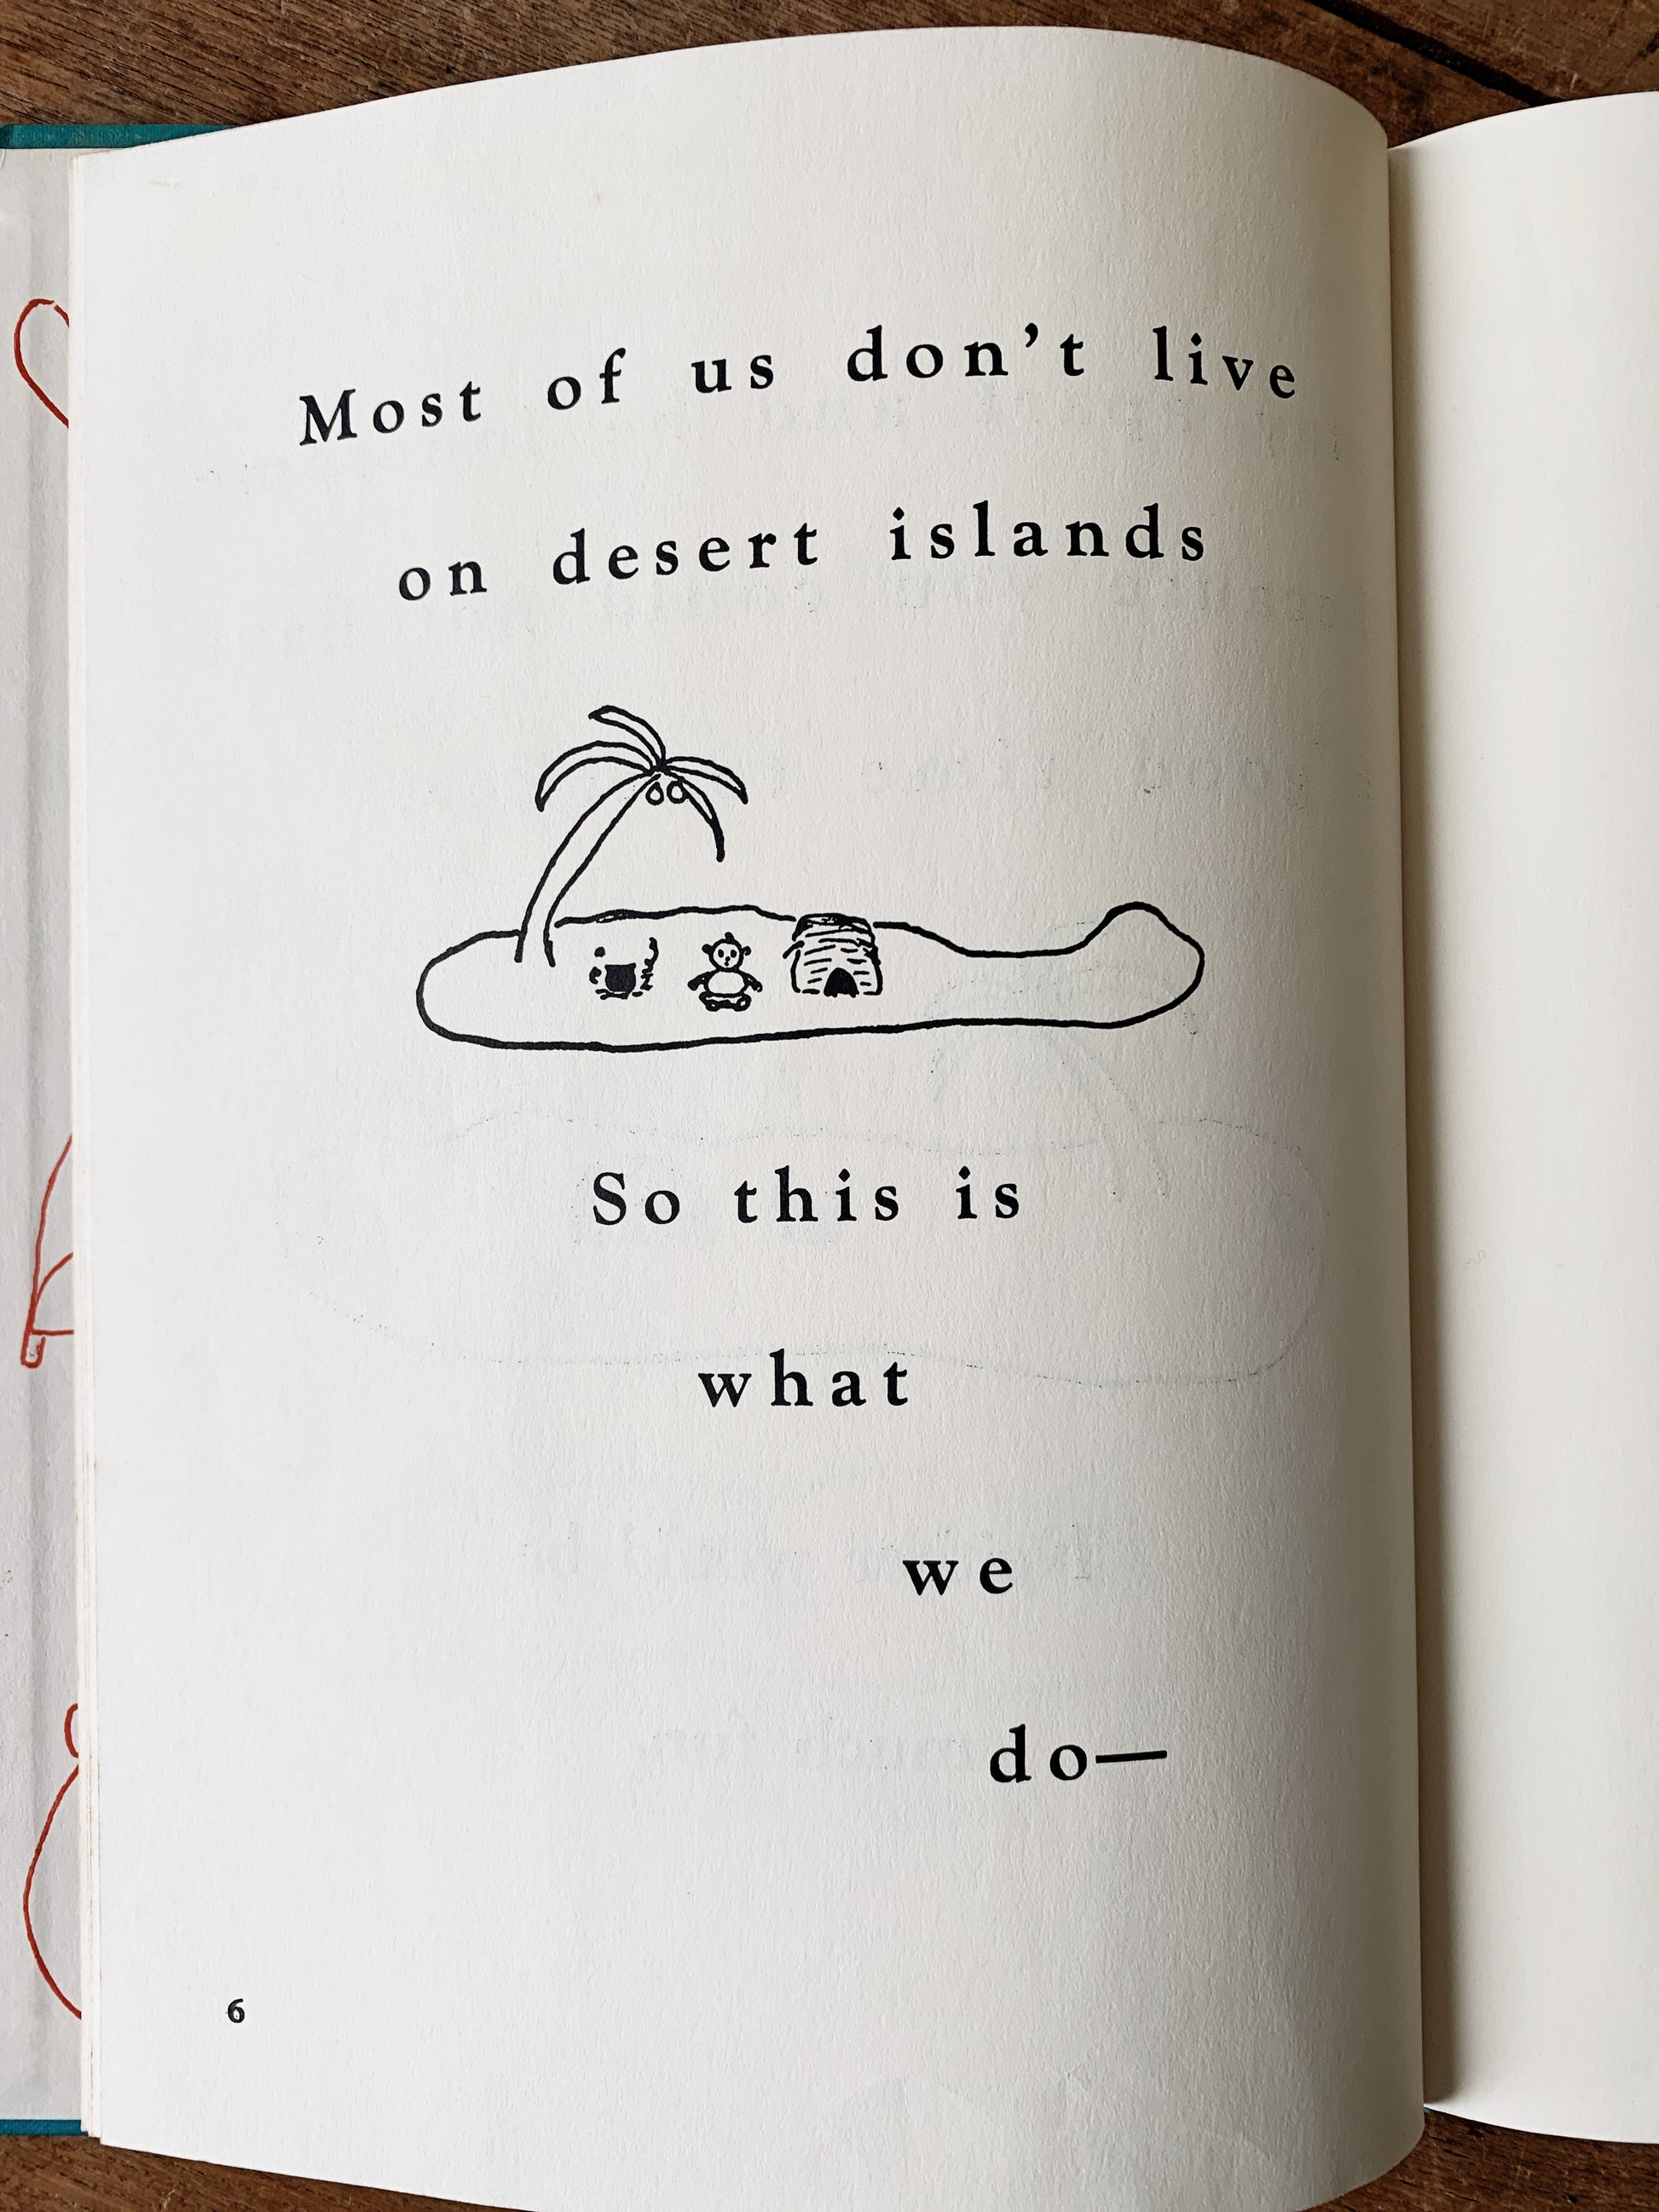 Most of us don't live
on desert islands
So this is
what
we
do—
6